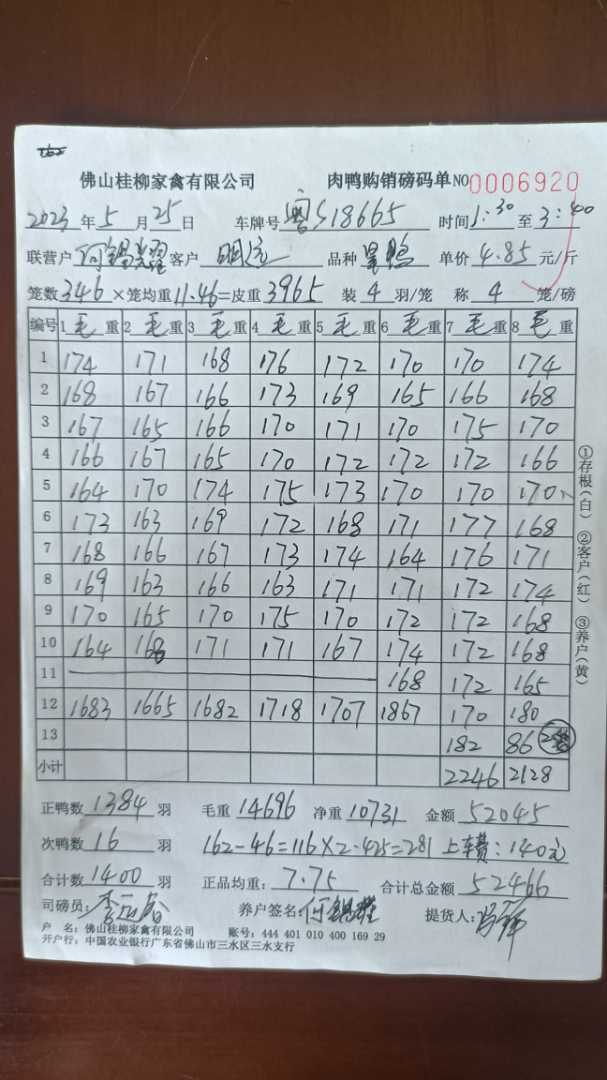 佛山桂柳家禽有限公司 肉鸭购销磅码单 NO 0006920
2023 年 5 月 25 日 车牌号 粤S18665 时间 1:30 至 3:40
联营户 何锡耀 客户 明记 品种 单价 4.85 元/斤
笼数 346 ×笼均重 11.46 =皮重 3965 装 4 羽/笼 称 4 笼/磅
编号 1 毛 重 2 毛 重 3 毛 重 4 毛 重 5 毛 重 6 毛 重 7 毛 重 8 毛 重
1 174 171 168 176 172 170 170 174
2 168 167 166 173 169 165 166 168
3 167 165 166 170 171 170 175 170
4 166 167 165 170 172 172 172 166
5 164 170 174 175 173 170 170 170
6 173 163 169 172 168 171 177 168
7 168 166 167 173 174 164 176 171
8 169 163 166 163 171 171 172 174
9 170 165 170 175 170 172 172 168
10 164 168 171 171 167 174 172 168
11 168 172 165
12 1683 1665 1682 1718 1707 1867 170 180
13 182 86
小计 2246 2128
①存根(白) ②客户(红) ③养户(黄)
正鸭数 1384 羽 毛重 14696 净重 10731 金额 52045
次鸭数 16 羽 162-46=116×2.425=281 上车费:140元
合计数 1400 羽 正品均重: 7.75 合计总金额 52466
司磅员: 养户签名: 何锡耀 提货人:
户 名: 佛山桂柳家禽有限公司 账号: 444 401 010 400 169 29
开户行: 中国农业银行广东省佛山市三水区三水支行